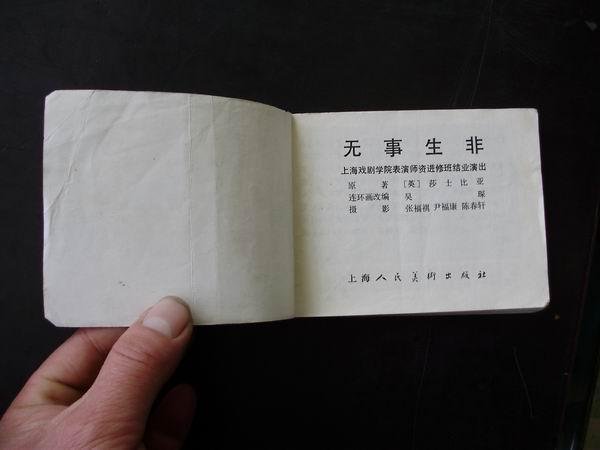 无事生非
上海戏剧学院表演师资进修班结业演出
原著 [英]莎士比亚
连环画改编 吴琛
摄影 张福祺 尹福康 陈春轩
上海人民美術出版社